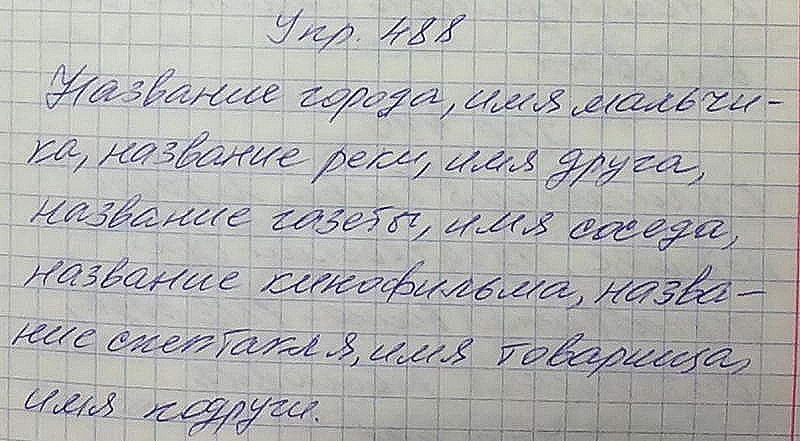 Упр. 488
Название города, имя мальчи-
ка, название реки, имя друга,
название газеты, имя соседа,
название кинофильма, назва-
ние спектакля, имя товарища,
имя подруги.